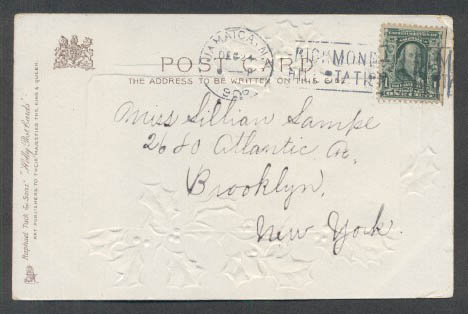 POST CARD
THE ADDRESS TO BE WRITTEN ON THIS
JAMAICA, N.Y.
DEC
RICHMOND
STATION
Miss Lillian Lampe
2680 Atlantic A.
Brooklyn,
New York.
Raphael Tuck & Sons' "Holly Post Cards"
ART PUBLISHERS TO THEIR MAJESTIES THE KING & QUEEN.